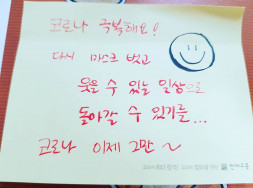 코로나 극복해요!
다시 마스크 벗고
웃을 수 있는 일상으로
돌아갈 수 있기를...
코로나 이제 그만~